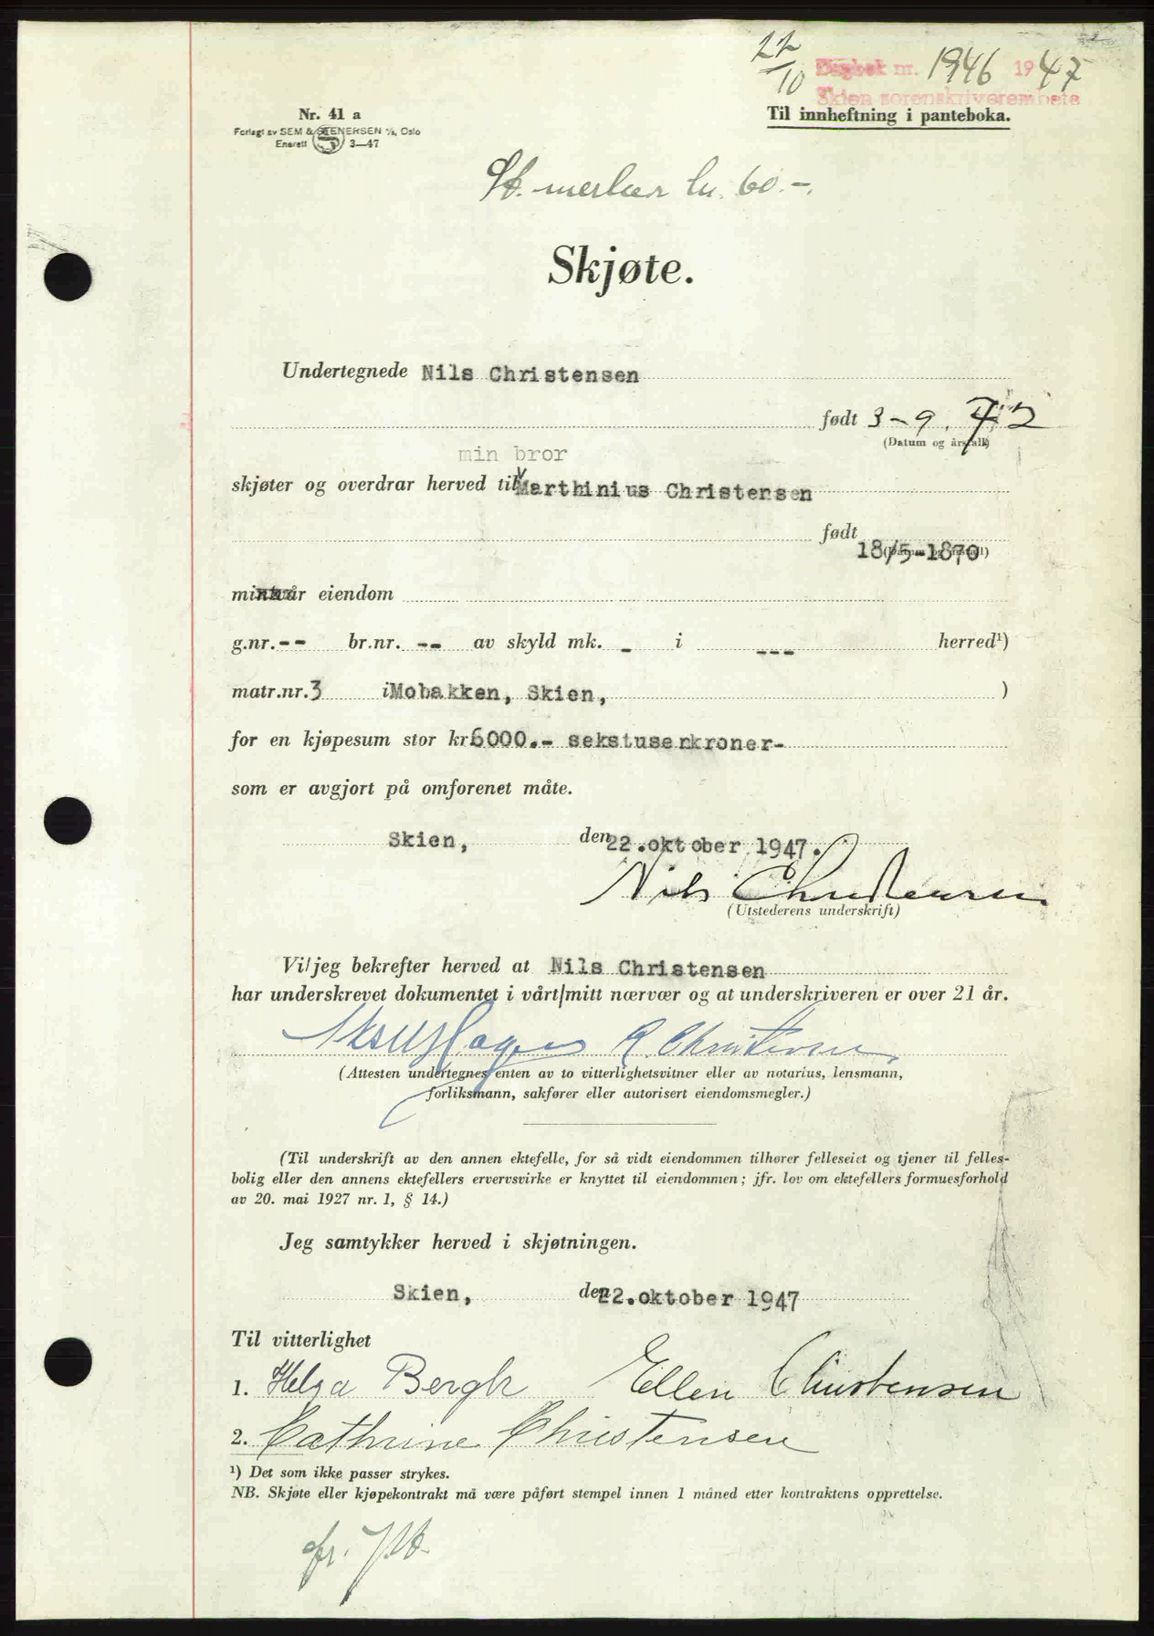 22/10 Dagbok nr. 1946 1947
Skien sorenskriverembete
Nr. 41 a
Til innheftning i panteboka.
Forlagt av SEM & STENERSEN A/S, Oslo
Enerett 3—47
St. merker kr. 60.-.
Skjøte.
Undertegnede Nils Christensen
født 3-9. 72
(Datum og årstall)
min bror
skjøter og overdrar herved til Marthinius Christensen
født
18/5-1870
(Datum og årstall)
min/vår eiendom
g.nr. -- br.nr. -- av skyld mk. - i --- herred¹)
matr.nr. 3 i Mobakken, Skien, )
for en kjøpesum stor kr. 6000.- sekstusenkroner-
som er avgjort på omforenet måte.
Skien, den 22.oktober 1947.
Nils Christensen
(Utstederens underskrift)
Vi/jeg bekrefter herved at Nils Christensen
har underskrevet dokumentet i vårt/mitt nærvær og at underskriveren er over 21 år.
R. Christensen
(Attesten undertegnes enten av to vitterlighetsvitner eller av notarius, lensmann,
forliksmann, sakfører eller autorisert eiendomsmegler.)
(Til underskrift av den annen ektefelle, for så vidt eiendommen tilhører felleseiet og tjener til felles-
bolig eller den annens ektefellers ervervsvirke er knyttet til eiendommen; jfr. lov om ektefellers formuesforhold
av 20. mai 1927 nr. 1, § 14.)
Jeg samtykker herved i skjøtningen.
Skien, den 22.oktober 1947
Til vitterlighet
1. Helga Bergh Ellen Christensen
2. Cathrine Christensen
¹) Det som ikke passer strykes.
NB. Skjøte eller kjøpekontrakt må være påført stempel innen 1 måned etter kontraktens opprettelse.